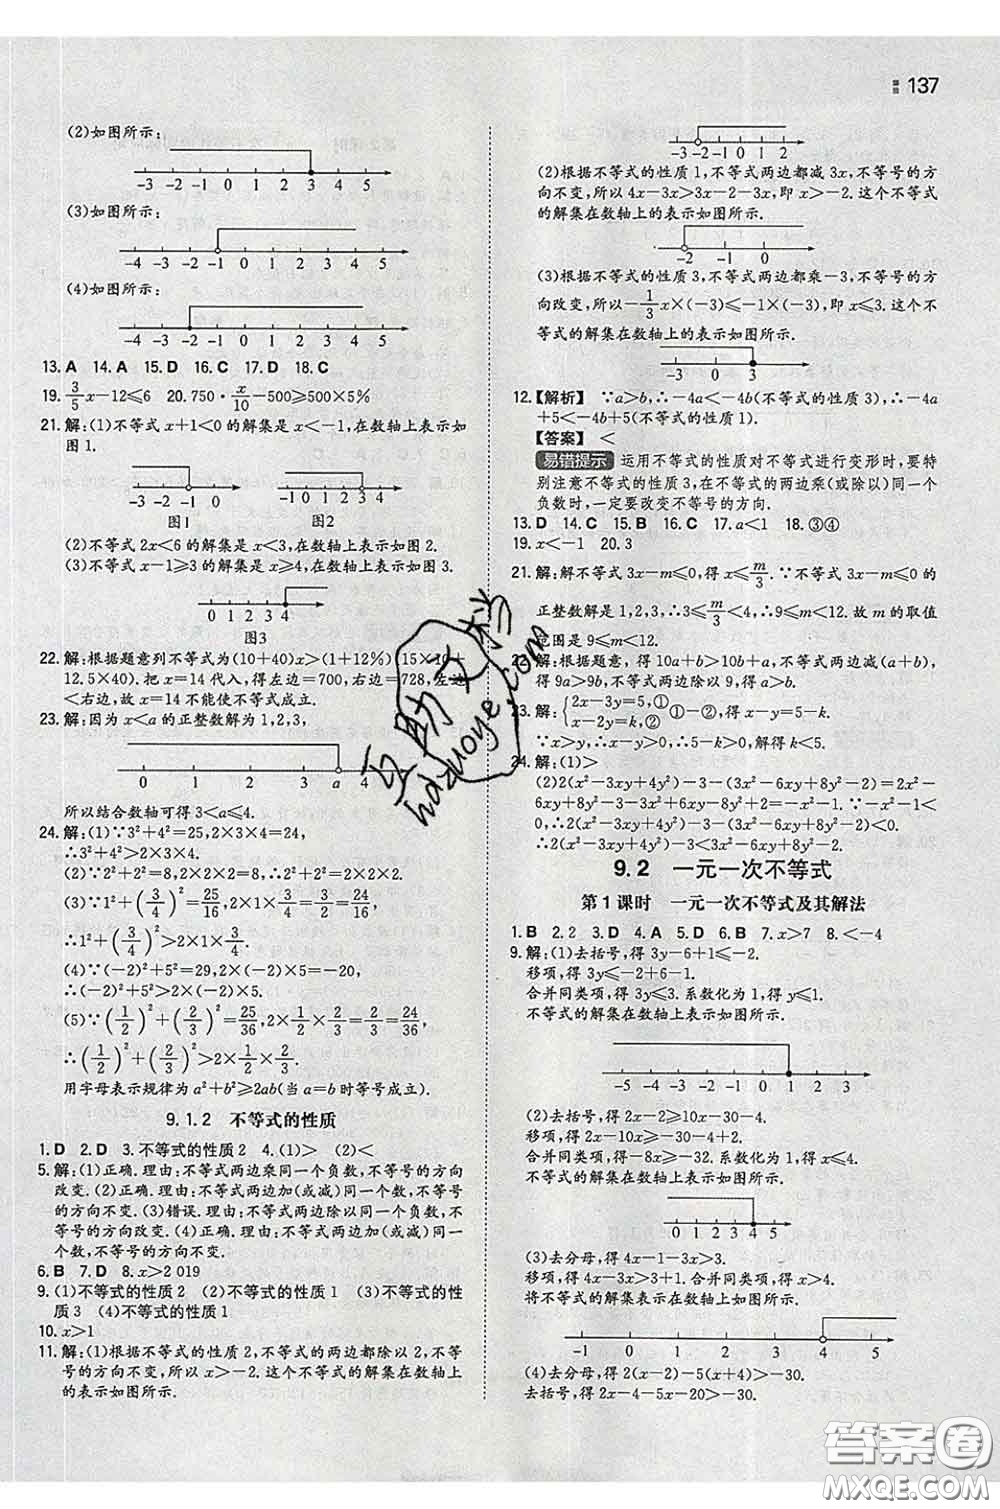 137
(2)如图所示:
-3 -2 -1 0 1 2 3 4 5
(3)如图所示:
-4 -3 -2 -1 0 1 2 3 4 5
(4)如图所示:
-4 -3 -2 -1 0 1 2 3 4 5
13. A 14. A 15. D 16. C 17. D 18. C
19. 3/5 x-12≤6 20. 750·x/10-500≥500×5%
21. 解:(1)不等式 x+1<0 的解集是 x<-1,在数轴上表示如
图 1.
-3 -2 -1 0 1
-1 0 1 2 3 4
图1 图2
(2)不等式 2x<6 的解集是 x<3,在数轴上表示如图 2.
(3)不等式 x-1≥3 的解集是 x≥4,在数轴上表示如图 3.
0 1 2 3 4
图3
22. 解:根据题意列不等式为(10+40)x>(1+12%)(15×10+
12.5×40). 把 x=14 代入,得左边=700,右边=728,左边
<右边,故 x=14 不能使不等式成立.
23. 解:因为 x<a 的正整数解为 1,2,3,
0 1 2 3 a 4
所以结合数轴可得 3<a≤4.
24. 解:(1)∵3²+4²=25,2×3×4=24,
∴3²+4²>2×3×4.
(2)∵2²+2²=8,2×2×2=8,∴2²+2²=2×2×2.
(3)∵1²+(3/4)²=25/16,2×1×3/4=24/16,
∴1²+(3/4)²>2×1×3/4.
(4)∵(-2)²+5²=29,2×(-2)×5=-20,
∴(-2)²+5²>2×(-2)×5.
(5)∵(1/2)²+(2/3)²=25/36,2×1/2×2/3=2/3=24/36,
∴(1/2)²+(2/3)²>2×1/2×2/3.
用字母表示规律为 a²+b²≥2ab(当 a=b 时等号成立).
9.1.2 不等式的性质
1. D 2. D 3. 不等式的性质 2 4. (1)> (2)<
5. 解:(1)正确. 理由:不等式两边乘同一个负数,不等号的方向
改变. (2)正确. 理由:不等式两边加(或减)同一个数,不等号
的方向不变. (3)错误. 理由:不等式两边除以同一个负数,不
等号的方向改变. (4)正确. 理由:不等式两边加(或减)同
一个数,不等号的方向不变.
6. B 7. D 8. x>2 019
9. (1)不等式的性质 2 (2)不等式的性质 1 (3)不等式的性
质 3 (4)不等式的性质 1
10. x>1
11. 解:(1)根据不等式的性质 2,不等式的两边都除以 2,不等
号的方向不变,所以 x>-2. 这个不等式的解集在数轴上的
表示如图所示.
-3 -2 -1 0 1 2
(2)根据不等式的性质 1,不等式两边都减 3x,不等号的方
向不变,所以 4x-3x>3x-2-3x,即 x>-2. 这个不等式
的解集在数轴上的表示如图所示.
-2 -1 0 1 2
(3)根据不等式的性质 3,不等式两边都乘-3,不等号的方
向改变,所以-1/3 x×(-3)≤-1×(-3),即 x≤3. 这个不
等式的解集在数轴上的表示如图所示.
-3 0 3
12.【解析】 ∵a>b,∴-4a<-4b(不等式的性质 3),∴-4a
+5<-4b+5(不等式的性质 1).
【答案】 <
易错提示 运用不等式的性质对不等式进行变形时,要特
别注意不等式的性质 3,在不等式的两边乘(或除以)同一个
负数时,一定要改变不等号的方向.
13. D 14. C 15. B 16. C 17. a<1 18. ③④
19. x<-1 20. 3
21. 解:解不等式 3x-m≤0,得 x≤m/3. ∵不等式 3x-m≤0 的
正整数解是 1,2,3,∴3≤m/3<4,∴9≤m<12. 故 m 的取值
范围是 9≤m<12.
22. 解:根据题意,得 10a+b>10b+a,不等式两边减(a+b),
得 9a>9b,不等式两边除以 9,得 a>b.
23. 解:{2x-3y=5,① x-2y=k.② ①-②,得 x-y=5-k.
∵x>y,∴x-y>0. ∴5-k>0. 解得 k<5.
24. 解:(1)>
(2)2(x²-3xy+4y²)-3(x²-3xy+6xy+8y²-2)=2x²
-6xy+8y²-3-2x²+6xy-8y²+2=-1. ∵-1<0,
∴2(x²-3xy+4y²)-3<2x²-6xy+8y²-2.
9.2 一元一次不等式
第 1 课时 一元一次不等式及其解法
1. B 2. 2 3. D 4. A 5. D 6. B 7. x>7 8. <-4
9. 解:(1)去括号,得 3y-6+1≤-2.
移项,得 3y≤-2+6-1.
合并同类项,得 3y≤3. 系数化为 1,得 y≤1.
不等式的解集在数轴上表示如图所示.
-5 -4 -3 -2 -1 0 1 2 3
(2)去括号,得 2x-2≥10x-30-4.
移项,得 2x-10x≥2-30-4.
合并同类项,得-8x≥-32. 系数化为 1,得 x≤4.
不等式的解集在数轴上表示如图所示.
0 1 2 3 4 5
(3)去分母,得 4x-1-3x>3.
移项,得 4x-3x>3+1. 合并同类项,得 x>4.
将不等式的解集表示在数轴上如图所示.
-1 0 1 2 3 4 5
(4)去分母,得 2(x-2)-5(x+4)>-30.
去括号,得 2x-4-5x-20>-30.
互助文档
hdzuoye.com
答案圈
MXQE.COM